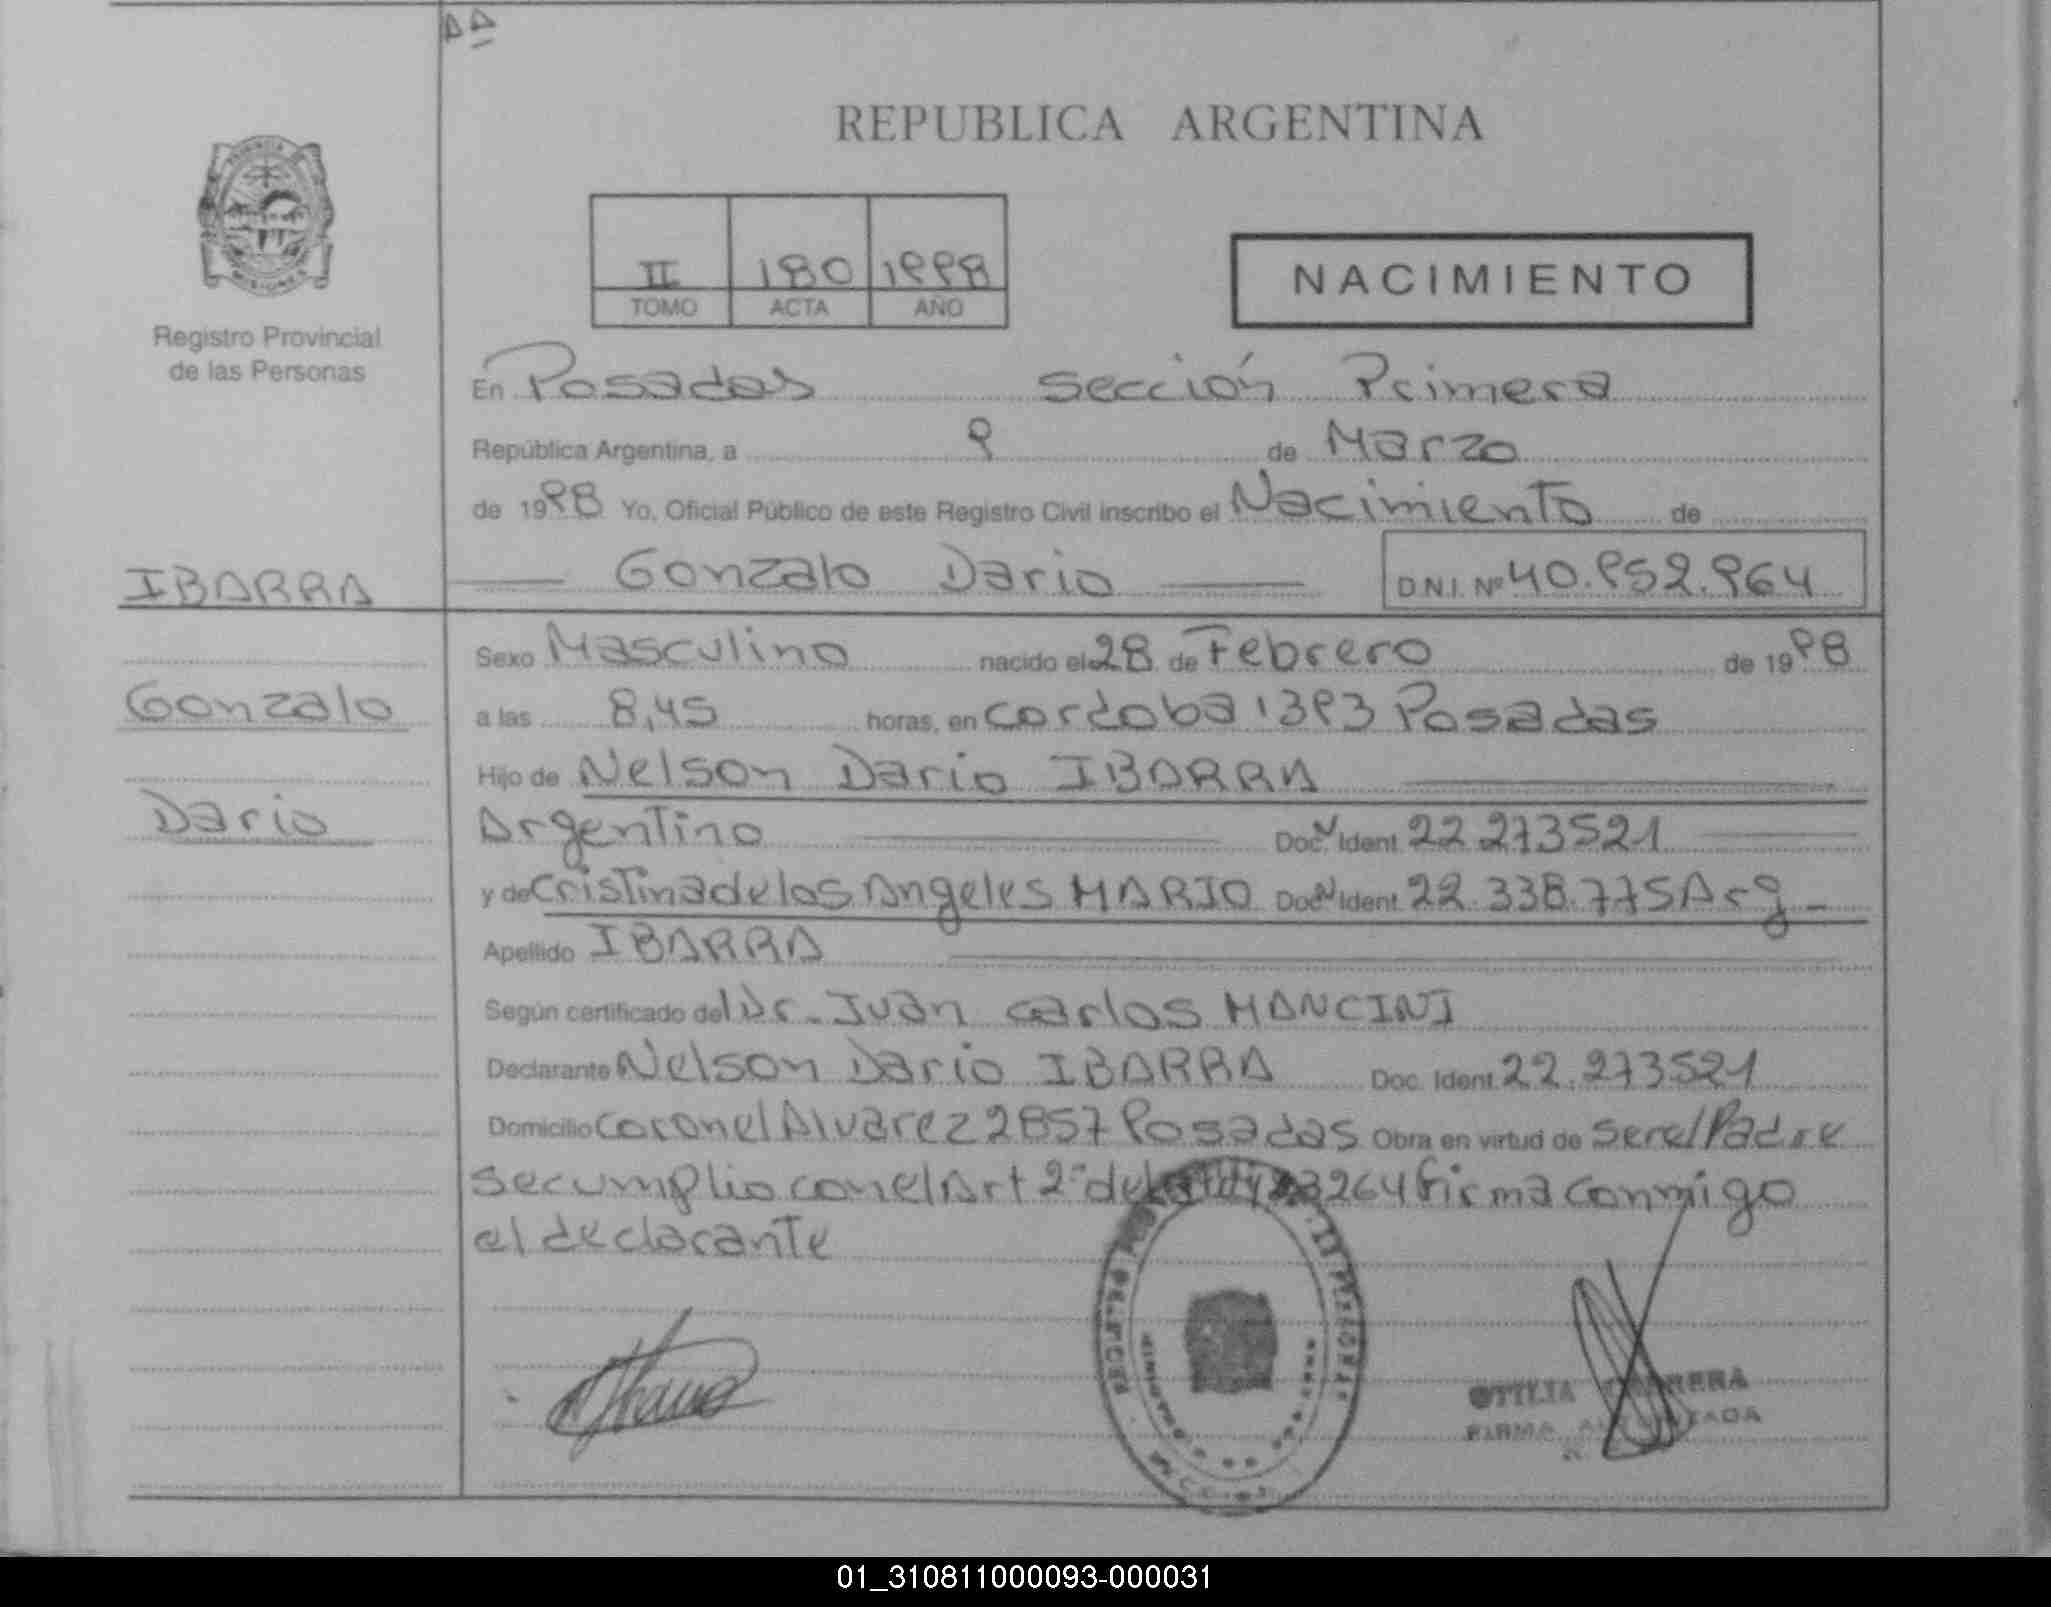 REPUBLICA ARGENTINA
II 180 1998
TOMO ACTA AÑO
NACIMIENTO
Registro Provincial
de las Personas
En Posadas Sección Primera
República Argentina, a 9 de Marzo
de 1998 Yo, Oficial Público de este Registro Civil inscribo el Nacimiento de
Gonzalo Dario D.N.I. Nº 40.952.964
IBARRA
Gonzalo
Dario
Sexo Masculino nacido el 28 de Febrero de 1998
a las 8,45 horas, en cordoba 1393 Posadas
Hijo de Nelson Dario IBARRA
Argentino Doc. Ident. 22.273521
y de Cristina de los Angeles MARIO Doc. Ident. 22.338.775 Arg
Apellido IBARRA
Según certificado del Dr. Juan Carlos MANCINI
Declarante Nelson Dario IBARRA Doc. Ident. 22.273521
Domicilio Coronel Alvarez 2857 Posadas Obra en virtud de ser el Padre
se cumplio con el Art 2º de 23264 firma conmigo
el declarante
OTILIA
FIRMA AUTORIZADA
01_310811000093-000031